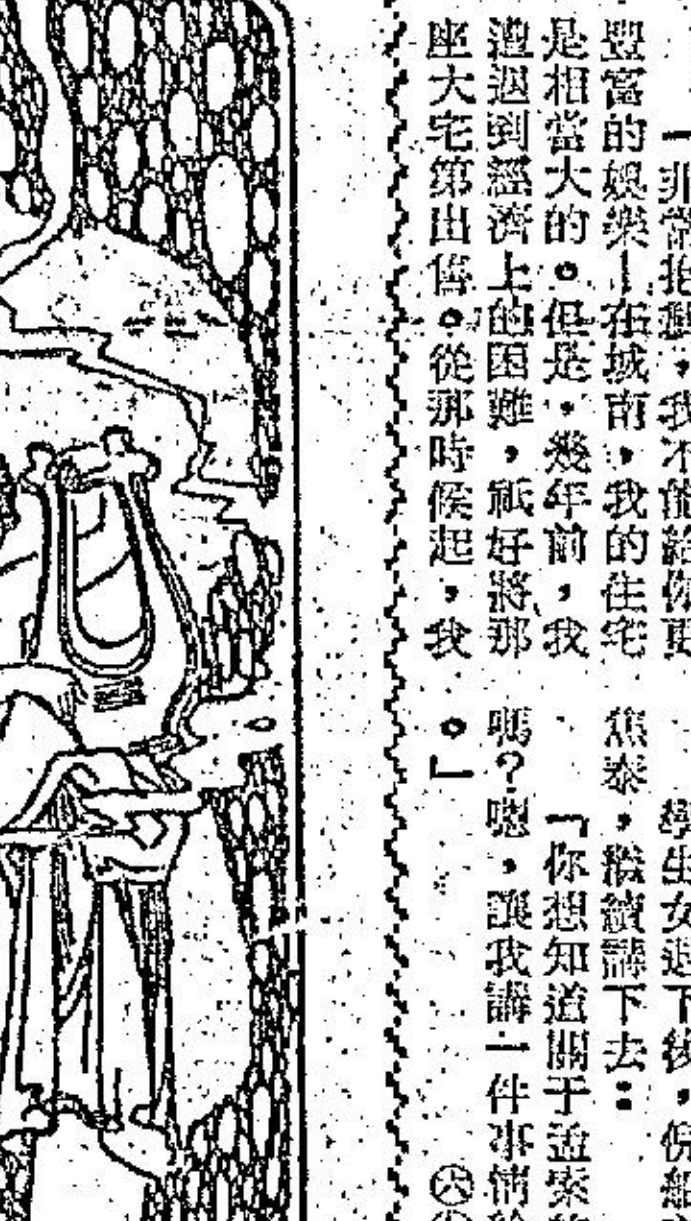 「非常抱歉,我不能給你更
豐富的娛樂—在城南,我的住宅
是相當大的。但是,幾年前,我
遭遇到經濟上的困難,祇好將那
座大宅第出售。從那時候起,我
學生女退下後,倪
焦泰,繼續講下去:
「你想知道關于孟索
嗎?嗯,讓我講一件事情
。」
㊅